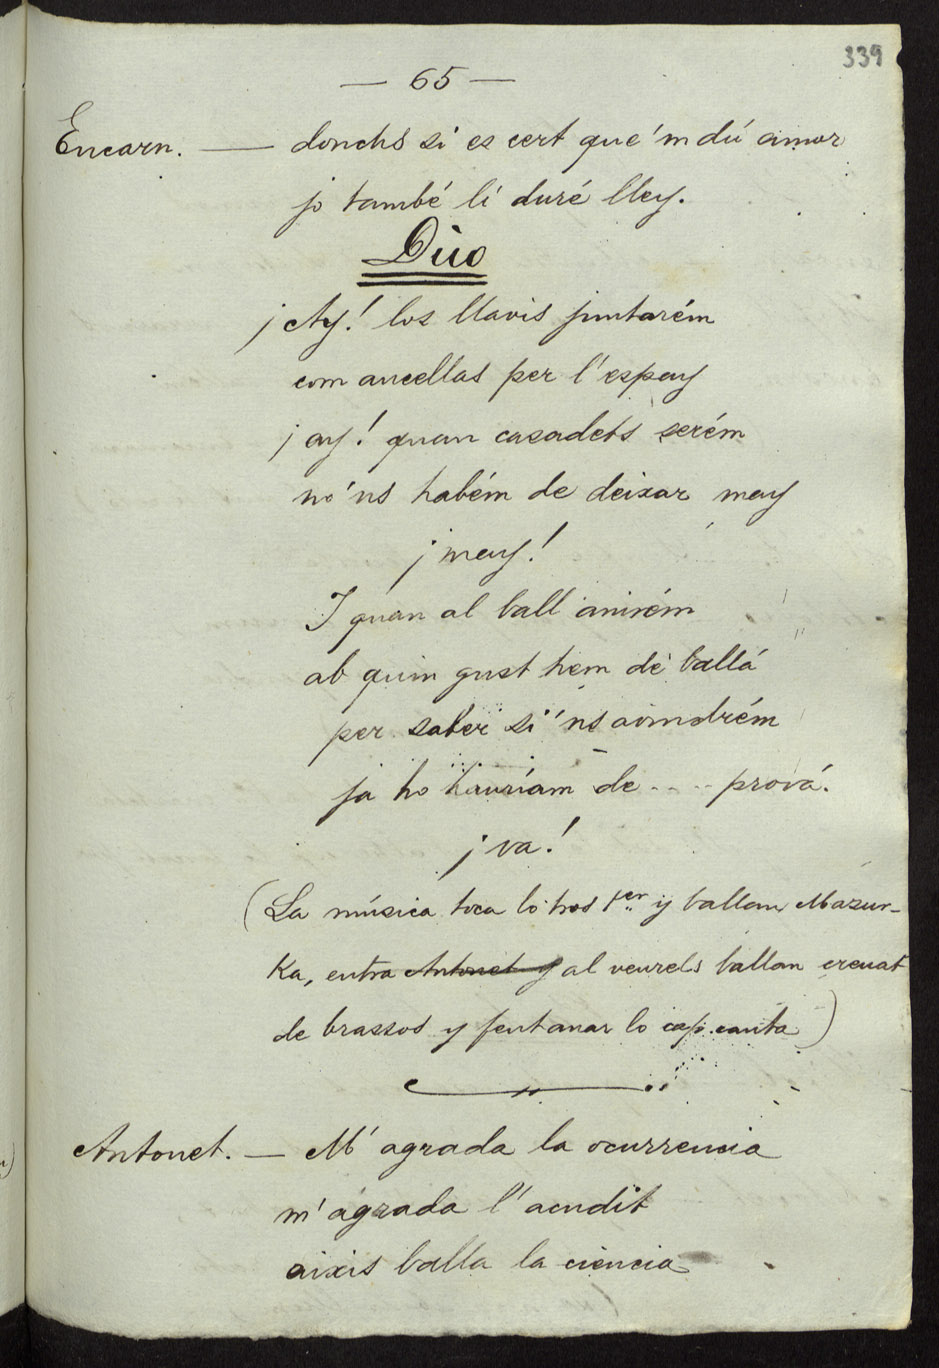 339
— 65 —
Encarn. — donchs si es cert que'm dú amor
jo també li duré lley.
Dúo
¡Ay! los llavis juntarém
com aucellas per l'espay
¡ay! quan casadets serém
no'ns habém de deixar may
¡may!
I quan al ball anirém
ab quin gust hem de ballá
per saber si'ns avindrém
ja ho hauríam de .... prová.
¡va!
(La música toca lo tros 1er y ballan Mazur-
Ka, entra Antonet y al veurels ballan creuat
de brassos y fent anar lo cap canta)
Antonet. — M'agrada la ocurrencia
m'agrada l'acudit
aixis balla la ciencia